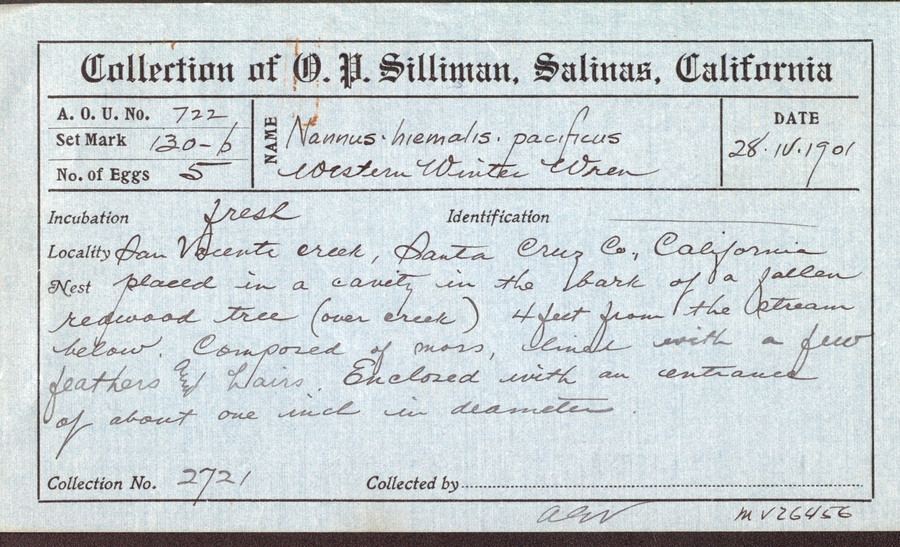 Collection of O. P. Silliman, Salinas, California
A. O. U. No. 722
Set Mark 130-b
No. of Eggs 5
NAME Nannus · hiemalis · pacificus
Western Winter Wren
DATE
28·IV·1901
Incubation fresh Identification
Locality San Vicente creek, Santa Cruz Co., California
Nest placed in a cavity in the bark of a fallen
redwood tree (over creek) 4 feet from the stream
below. Composed of moss, lined with a few
feathers and hairs. Enclosed with an entrance
of about one inch in deameter.
Collection No. 2721 Collected by
MV26456